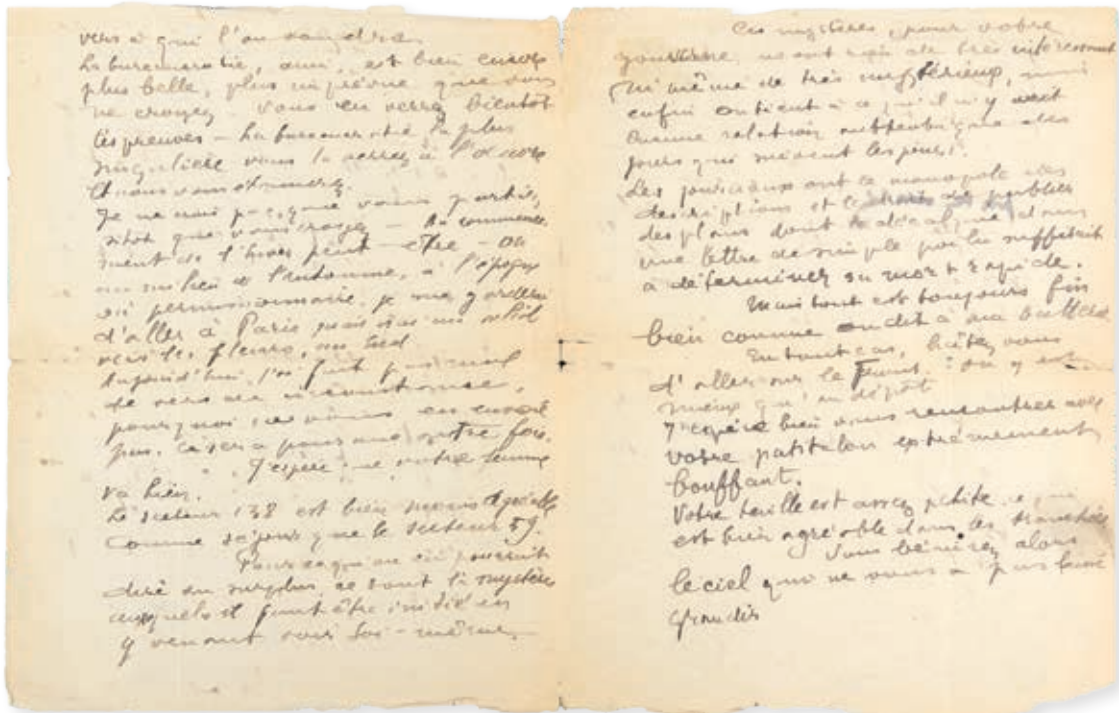 vers à qui l'on voudra
La bureaucratie, ami, est bien encore
plus belle, plus imprévue que vous
ne croyez. Vous en verrez bientôt
les preuves — La bureaucratie la plus
singulière vous la verrez à l'œuvre
et vous vous
Je ne sais pas que vous partiez
sitôt que vous croyez — Au commence
ment de l'hiver peut-être — ou
au milieu de l'automne, à l'époque
où permissionnaire je me garderai
d'aller à Paris mais
vers les fleurs, au sud
Aujourd'hui, j'ai fait pas mal
de vers de circonstance,
pourquoi vous en enverrai
pas, ça sera pour une autre fois.
J'espère que votre femme
va bien.
Le secteur 138 est bien moins
comme séjour que le secteur 59.
Pour ce qu'on en pourrait
dire au surplus, ce sont là mystère
auxquels il faut être initié en
y venant voir soi-même.
Ces mystères, pour votre
gouverne, n'ont rien de très intéressant
ni même de très mystérieux, mais
enfin on tient à ce qu'il n'y ait
aucune relation authentique des
jours qui suivent les jours.
Les journaux ont le monopole des
descriptions et le droit de publier
des plans dont le décalque dans
une lettre de simple poilu suffirait
à déterminer sa mort rapide.
Mais tout est toujours fin
bien comme on dit à ma batterie
En tout cas, hâtez vous
d'aller sur le Front : on y est
mieux qu'en dépôt
J'espère bien vous rencontrer avec
votre pantalon extrêmement
bouffant.
Votre taille est assez petite ce qui
est bien agréable dans les tranchées
Vous bénirez alors
le ciel qui ne vous a pas laissé
grandir